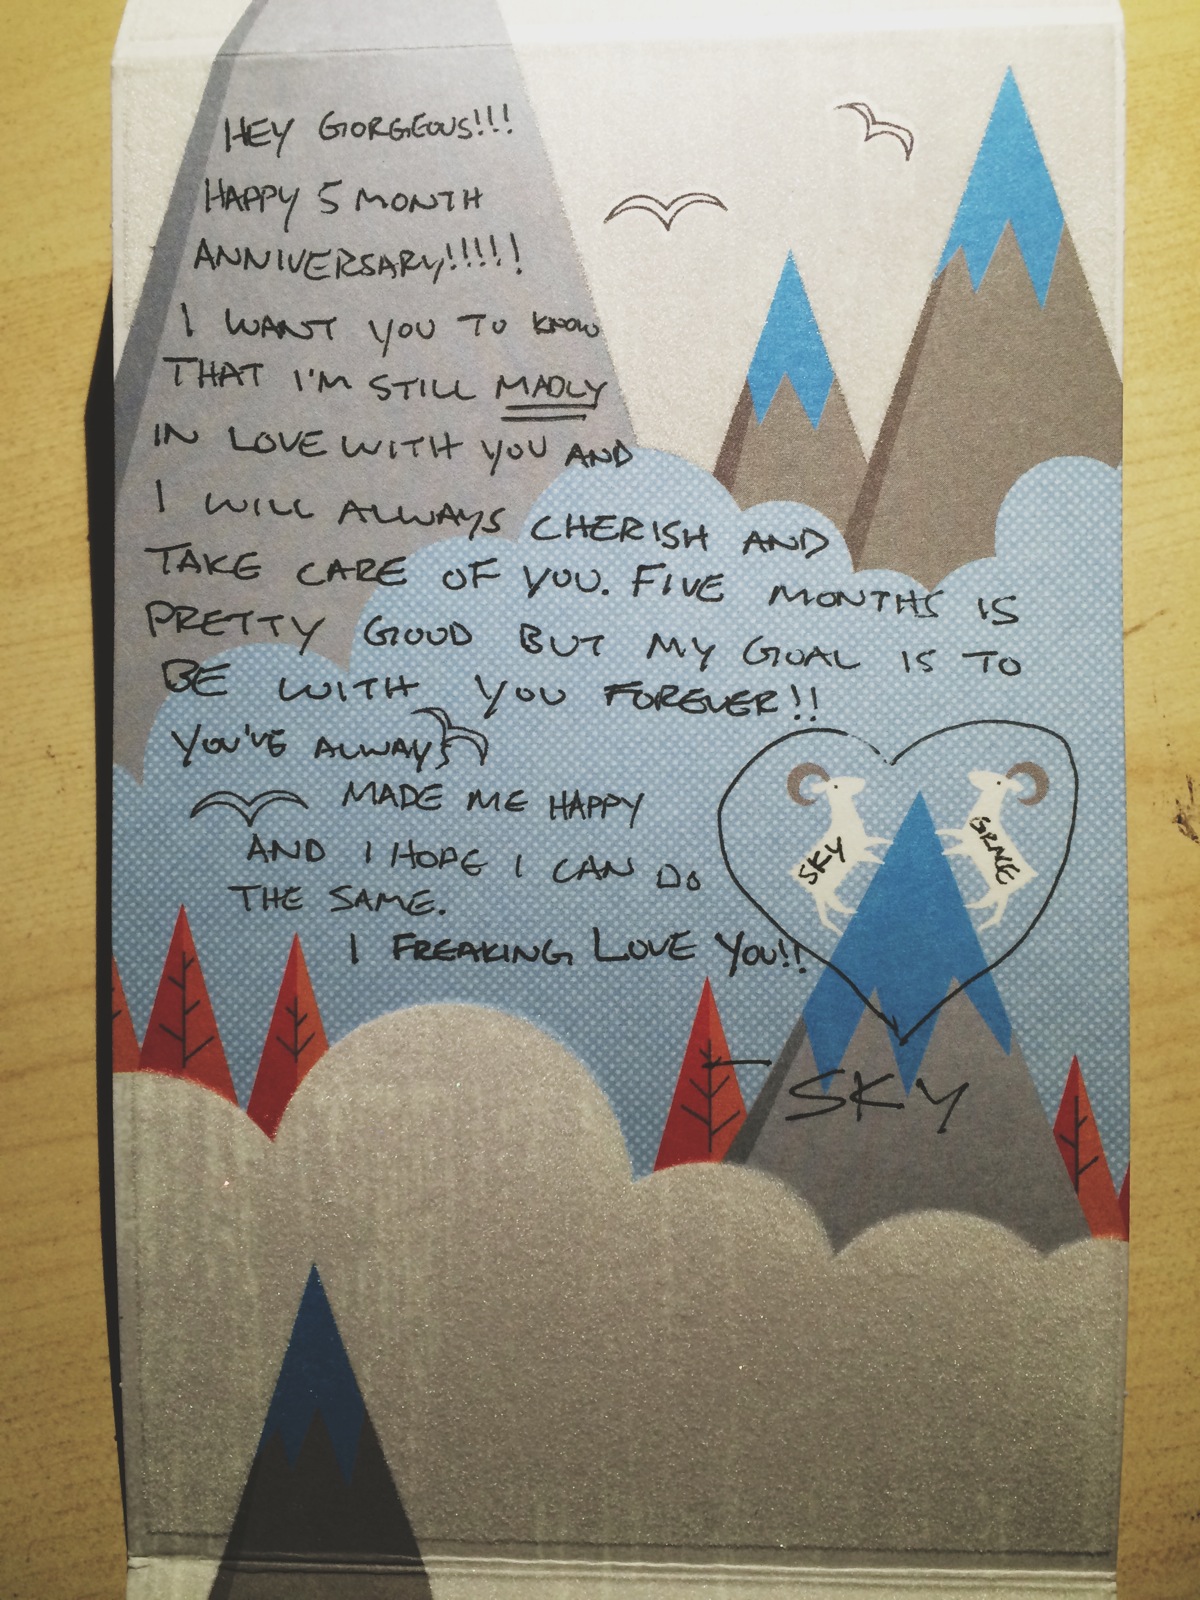 HEY GORGEOUS!!!
HAPPY 5 MONTH
ANNIVERSARY!!!!!
I WANT YOU TO KNOW
THAT I'M STILL MADLY
IN LOVE WITH YOU AND
I WILL ALWAYS CHERISH AND
TAKE CARE OF YOU. FIVE MONTHS IS
PRETTY GOOD BUT MY GOAL IS TO
BE WITH YOU FOREVER!!
YOU'VE ALWAYS
MADE ME HAPPY
AND I HOPE I CAN DO
THE SAME.
I FREAKING LOVE YOU!!
SKY
GRACE
- SKY